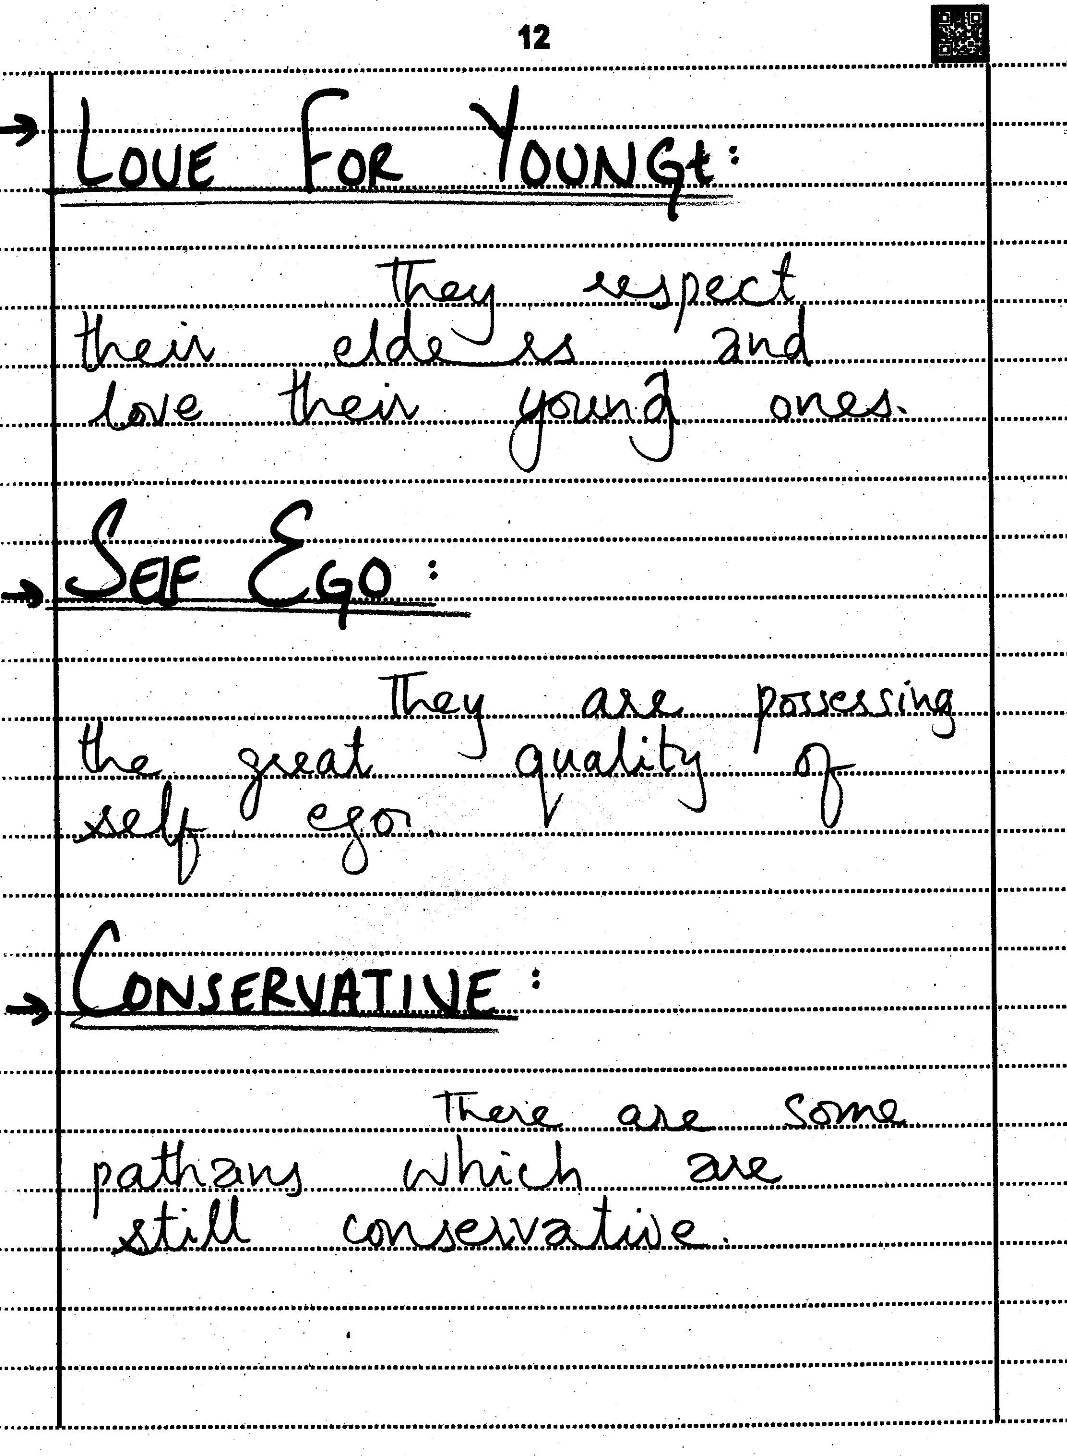 12
→ LOVE FOR YOUNG:
They respect
their elders and
love their young ones.
→ SELF EGO:
They are possessing
the great quality of
self ego.
→ CONSERVATIVE:
There are some
pathans which are
still conservative.